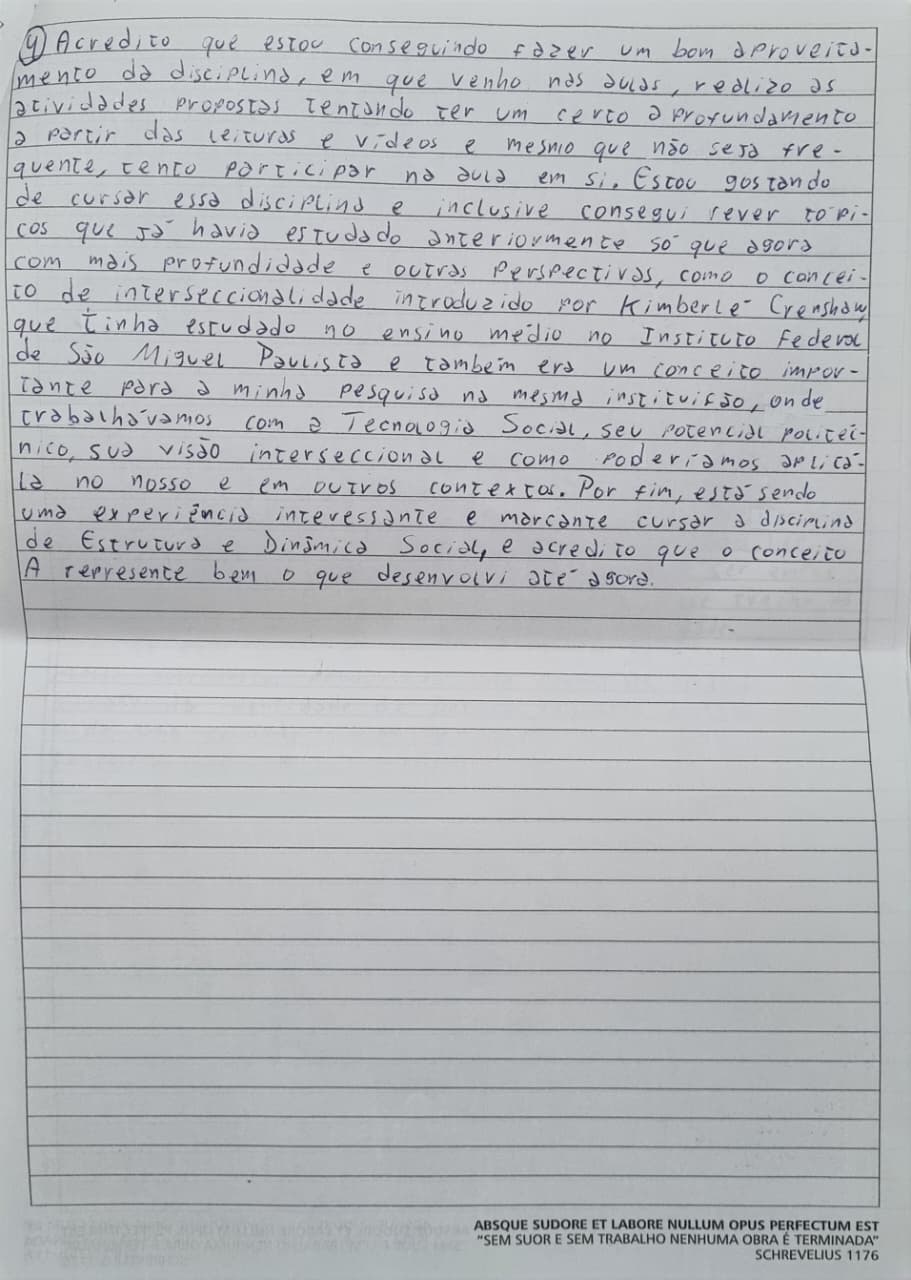 4) Acredito que estou conseguindo fazer um bom aproveita-
mento da disciplina, em que venho nas aulas, realizo as
atividades propostas tentando ter um certo aprofundamento
a partir das leituras e vídeos e mesmo que não seja fre-
quente, tento participar na aula em si. Estou gostando
de cursar essa disciplina e inclusive consegui rever tópi-
cos que já havia estudado anteriormente só que agora
com mais profundidade e outras perspectivas, como o concei-
to de interseccionalidade introduzido por Kimberlé Crenshaw,
que tinha estudado no ensino médio no Instituto Federal
de São Miguel Paulista e também era um conceito impor-
tante para a minha pesquisa na mesma instituição, onde
trabalhávamos com a Tecnologia Social, seu potencial politéc-
nico, sua visão interseccional e como poderíamos aplicá-
la no nosso e em outros contextos. Por fim, está sendo
uma experiência interessante e marcante cursar a disciplina
de Estrutura e Dinâmica Social, e acredito que o conceito
A represente bem o que desenvolvi até agora.
ABSQUE SUDORE ET LABORE NULLUM OPUS PERFECTUM EST
"SEM SUOR E SEM TRABALHO NENHUMA OBRA É TERMINADA"
SCHREVELIUS 1176